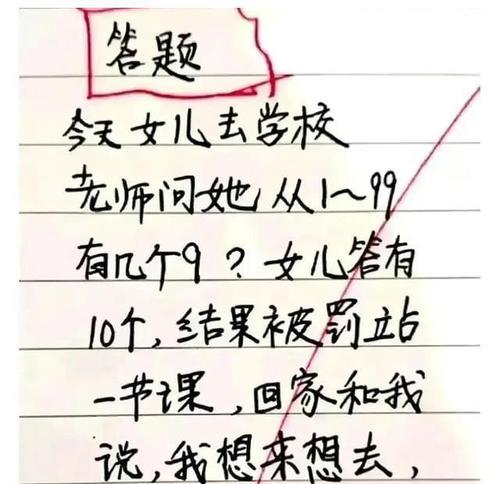 答题
今天女儿去学校
老师问她从1~99
有几个9？女儿答有
10个，结果被罚立站
一节课，回家和我
说，我想来想去，